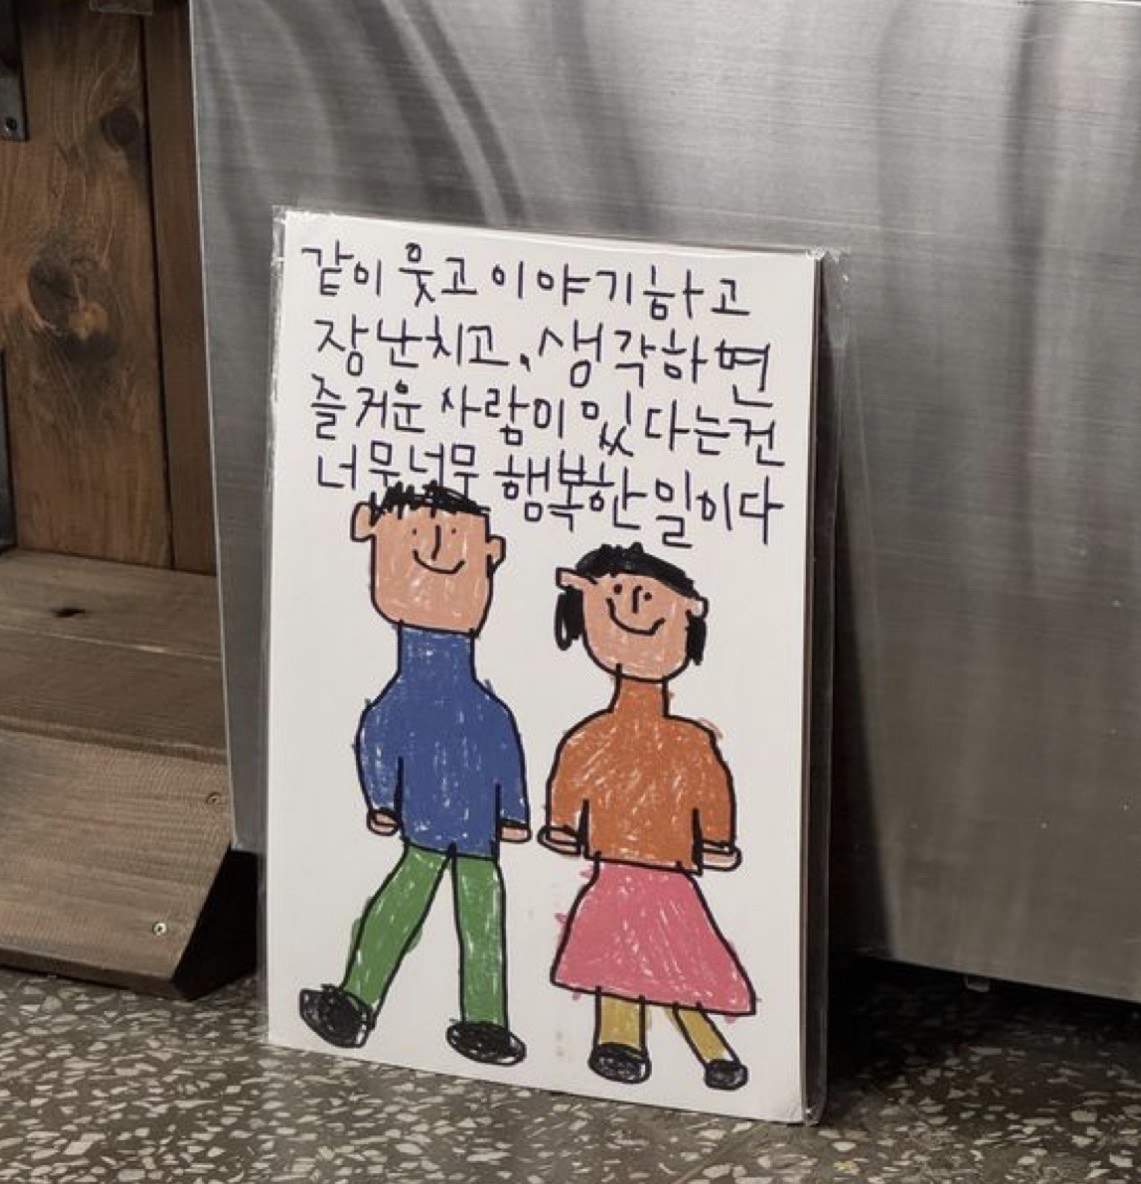 같이 웃고 이야기하고
장난치고, 생각하면
즐거운 사람이 있다는건
너무너무 행복한 일이다